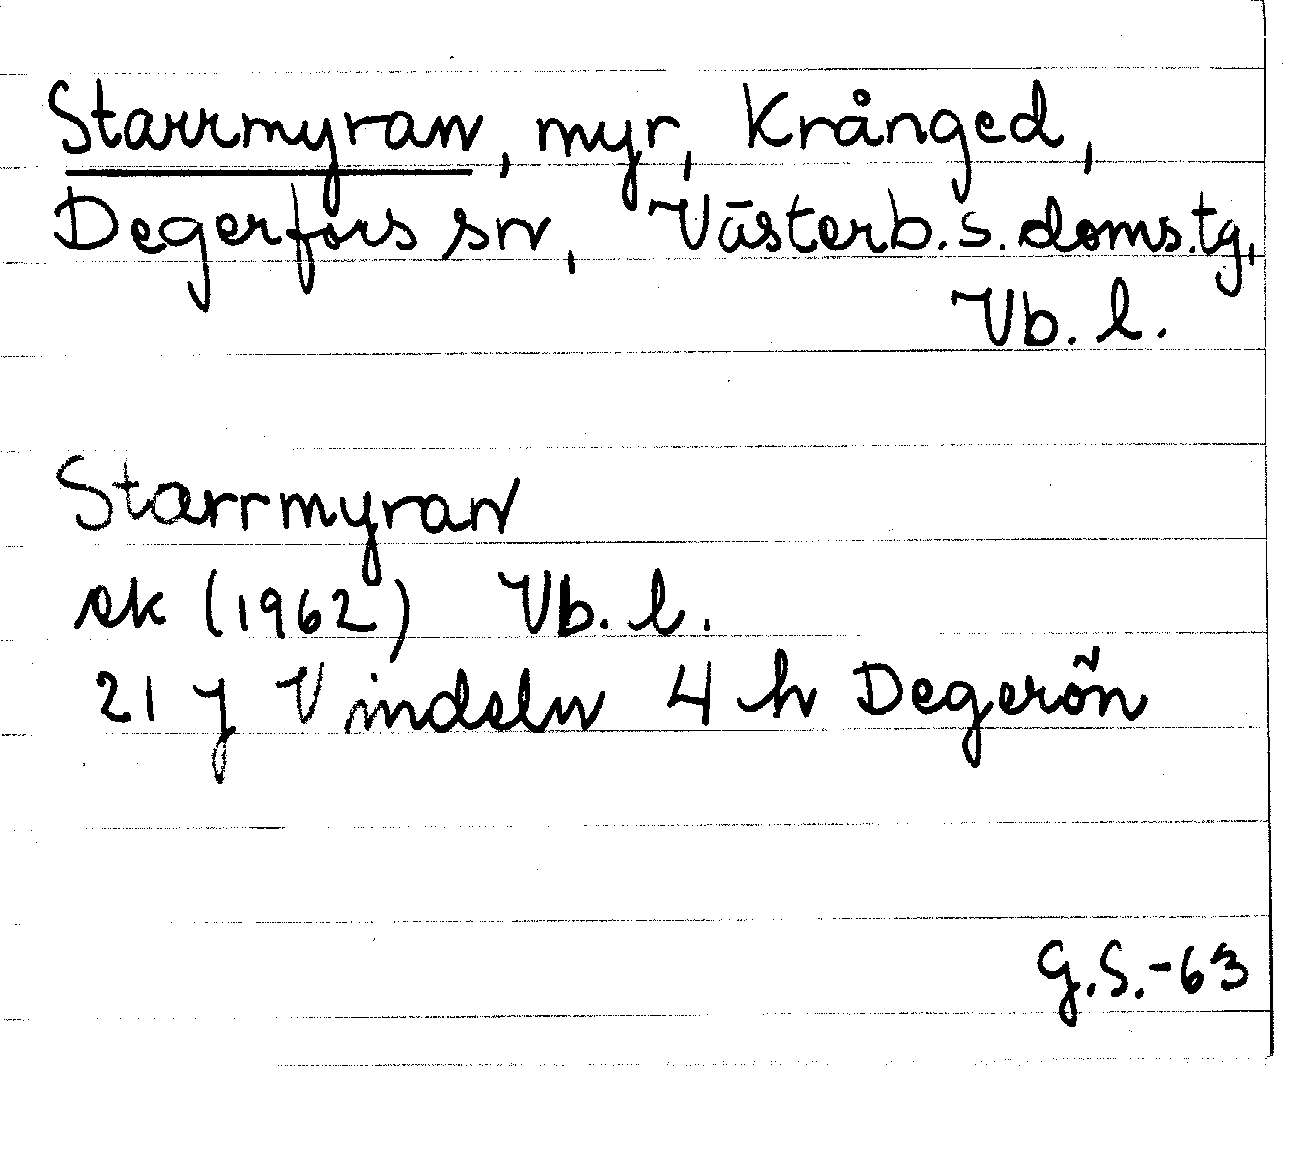 Starrmyran, myr, Krånged,
Degerfors sn, Västerb. s. doms.tg,
Vb. l.
Starrmyran
ek (1962) Vb. l.
21 J Vindeln 4 h Degerön
G.S.-63